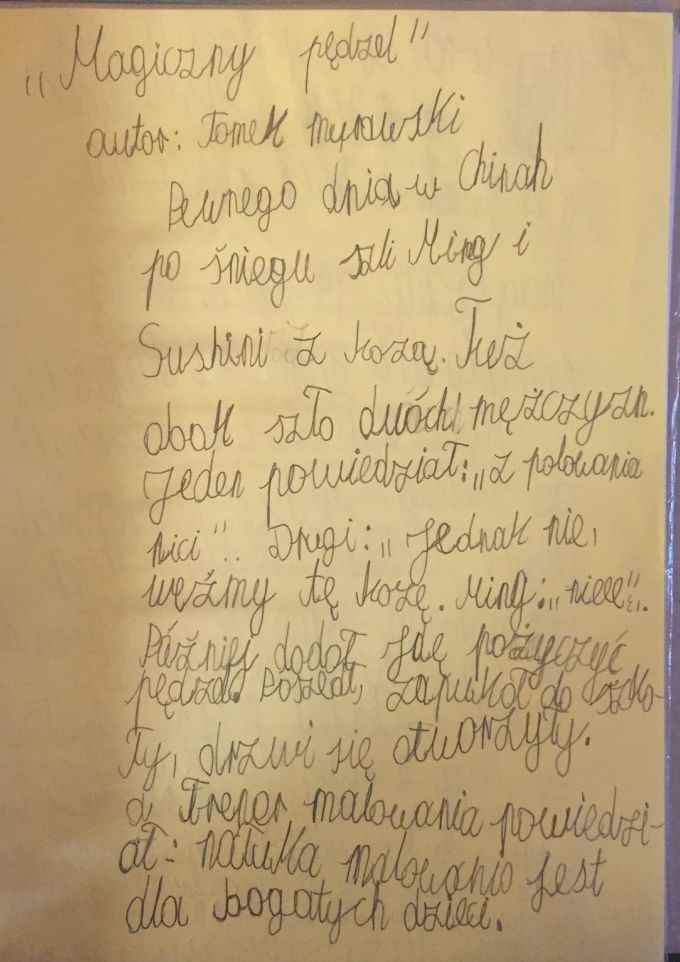 „Magiczny pędzel"
autor: Tomek
Pewnego dnia w Chinah
po śniegu szli Ming i
Sushini z kozą. Też
obok szło dwóch mężczyzn.
Jeden powiedział: „z polowania
nici". Drugi: „Jednak nie,
weźmy tę kozę. Ming: „nieee".
Później dodał Idę pożyczyć
pędzel. Poszedł, zapukał do szko-
ły, drzwi się otworzyły.
a Trener malowania powiedzi-
ał: nauka malowania jest
dla bogatych dzieci.